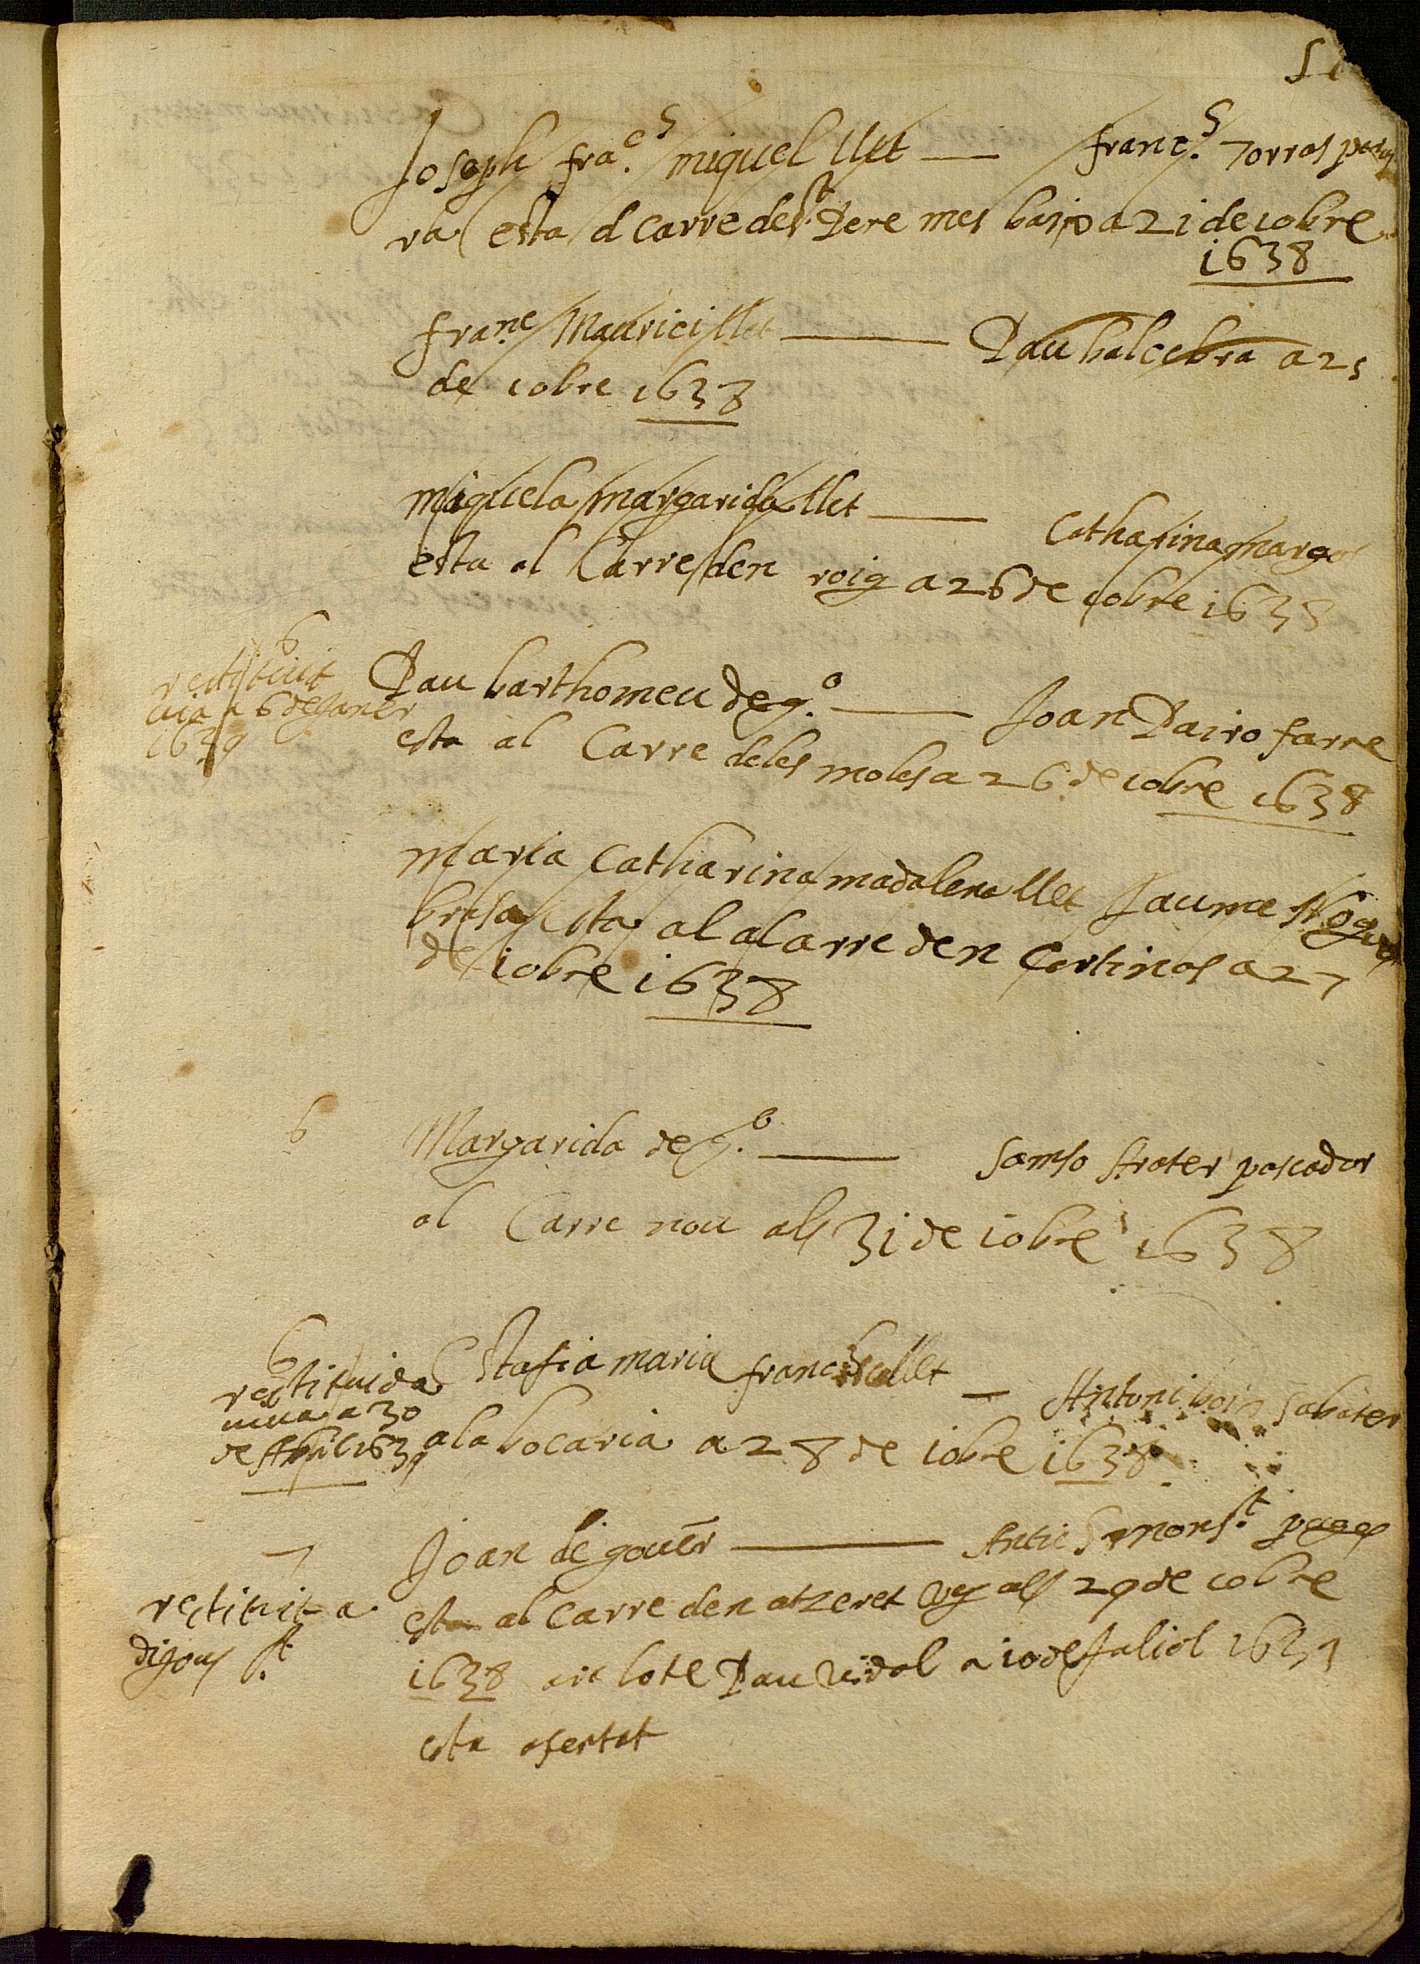 Joseph fra.cs miquel llet — franc.s Torras
ra esta al carre de st Pere mes baixo a 21 de 10bre
1638
fra.nc Maurici llet — Pau balcebra a 25
de 10bre 1638
miquela margarida llet — Catharina
esta al Carre den roig a 26 de 10bre 1638
6
restituit
viu a 6 de Janer
1639
Pau barthomeu de g.o — Joan Pairo farre
esta al Carre deles moles a 26 de 10bre 1638
maria Catharina madalena llet Jaume
brasa esta al alarre den Cortinas a 27
de 10bre 1638
6 Margarida de g.o — Samso strater pascador
al Carre nou als 31 de 10bre 1638
6
restituida
viva a 30
de Abril 1639
Estasia maria llet — Antoni sabater
ala bocaria a 28 de 10bre 1638
7
restituit a
dijous st.
Joan de gouer — Antic Simon st. pages
esta al carre den atzeret vy als 29 de 10bre
1638 are lo te Pau vidal a 10 de Juliol 1639
esta afertat